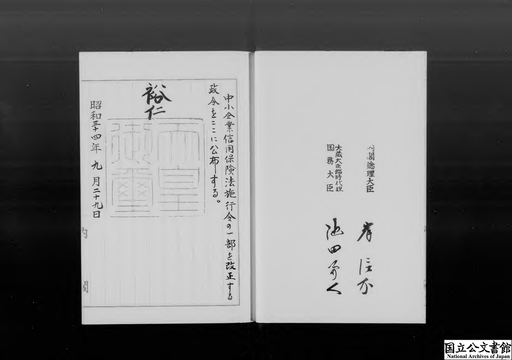 内閣総理大臣
岸信介
大蔵大臣臨時代理
国務大臣
池田勇人
中小企業信用保険法施行令の一部を改正する
政令をここに公布する。
裕仁
天皇
御璽
昭和三十四年九月二十九日
内閣
国立公文書館
National Archives of Japan